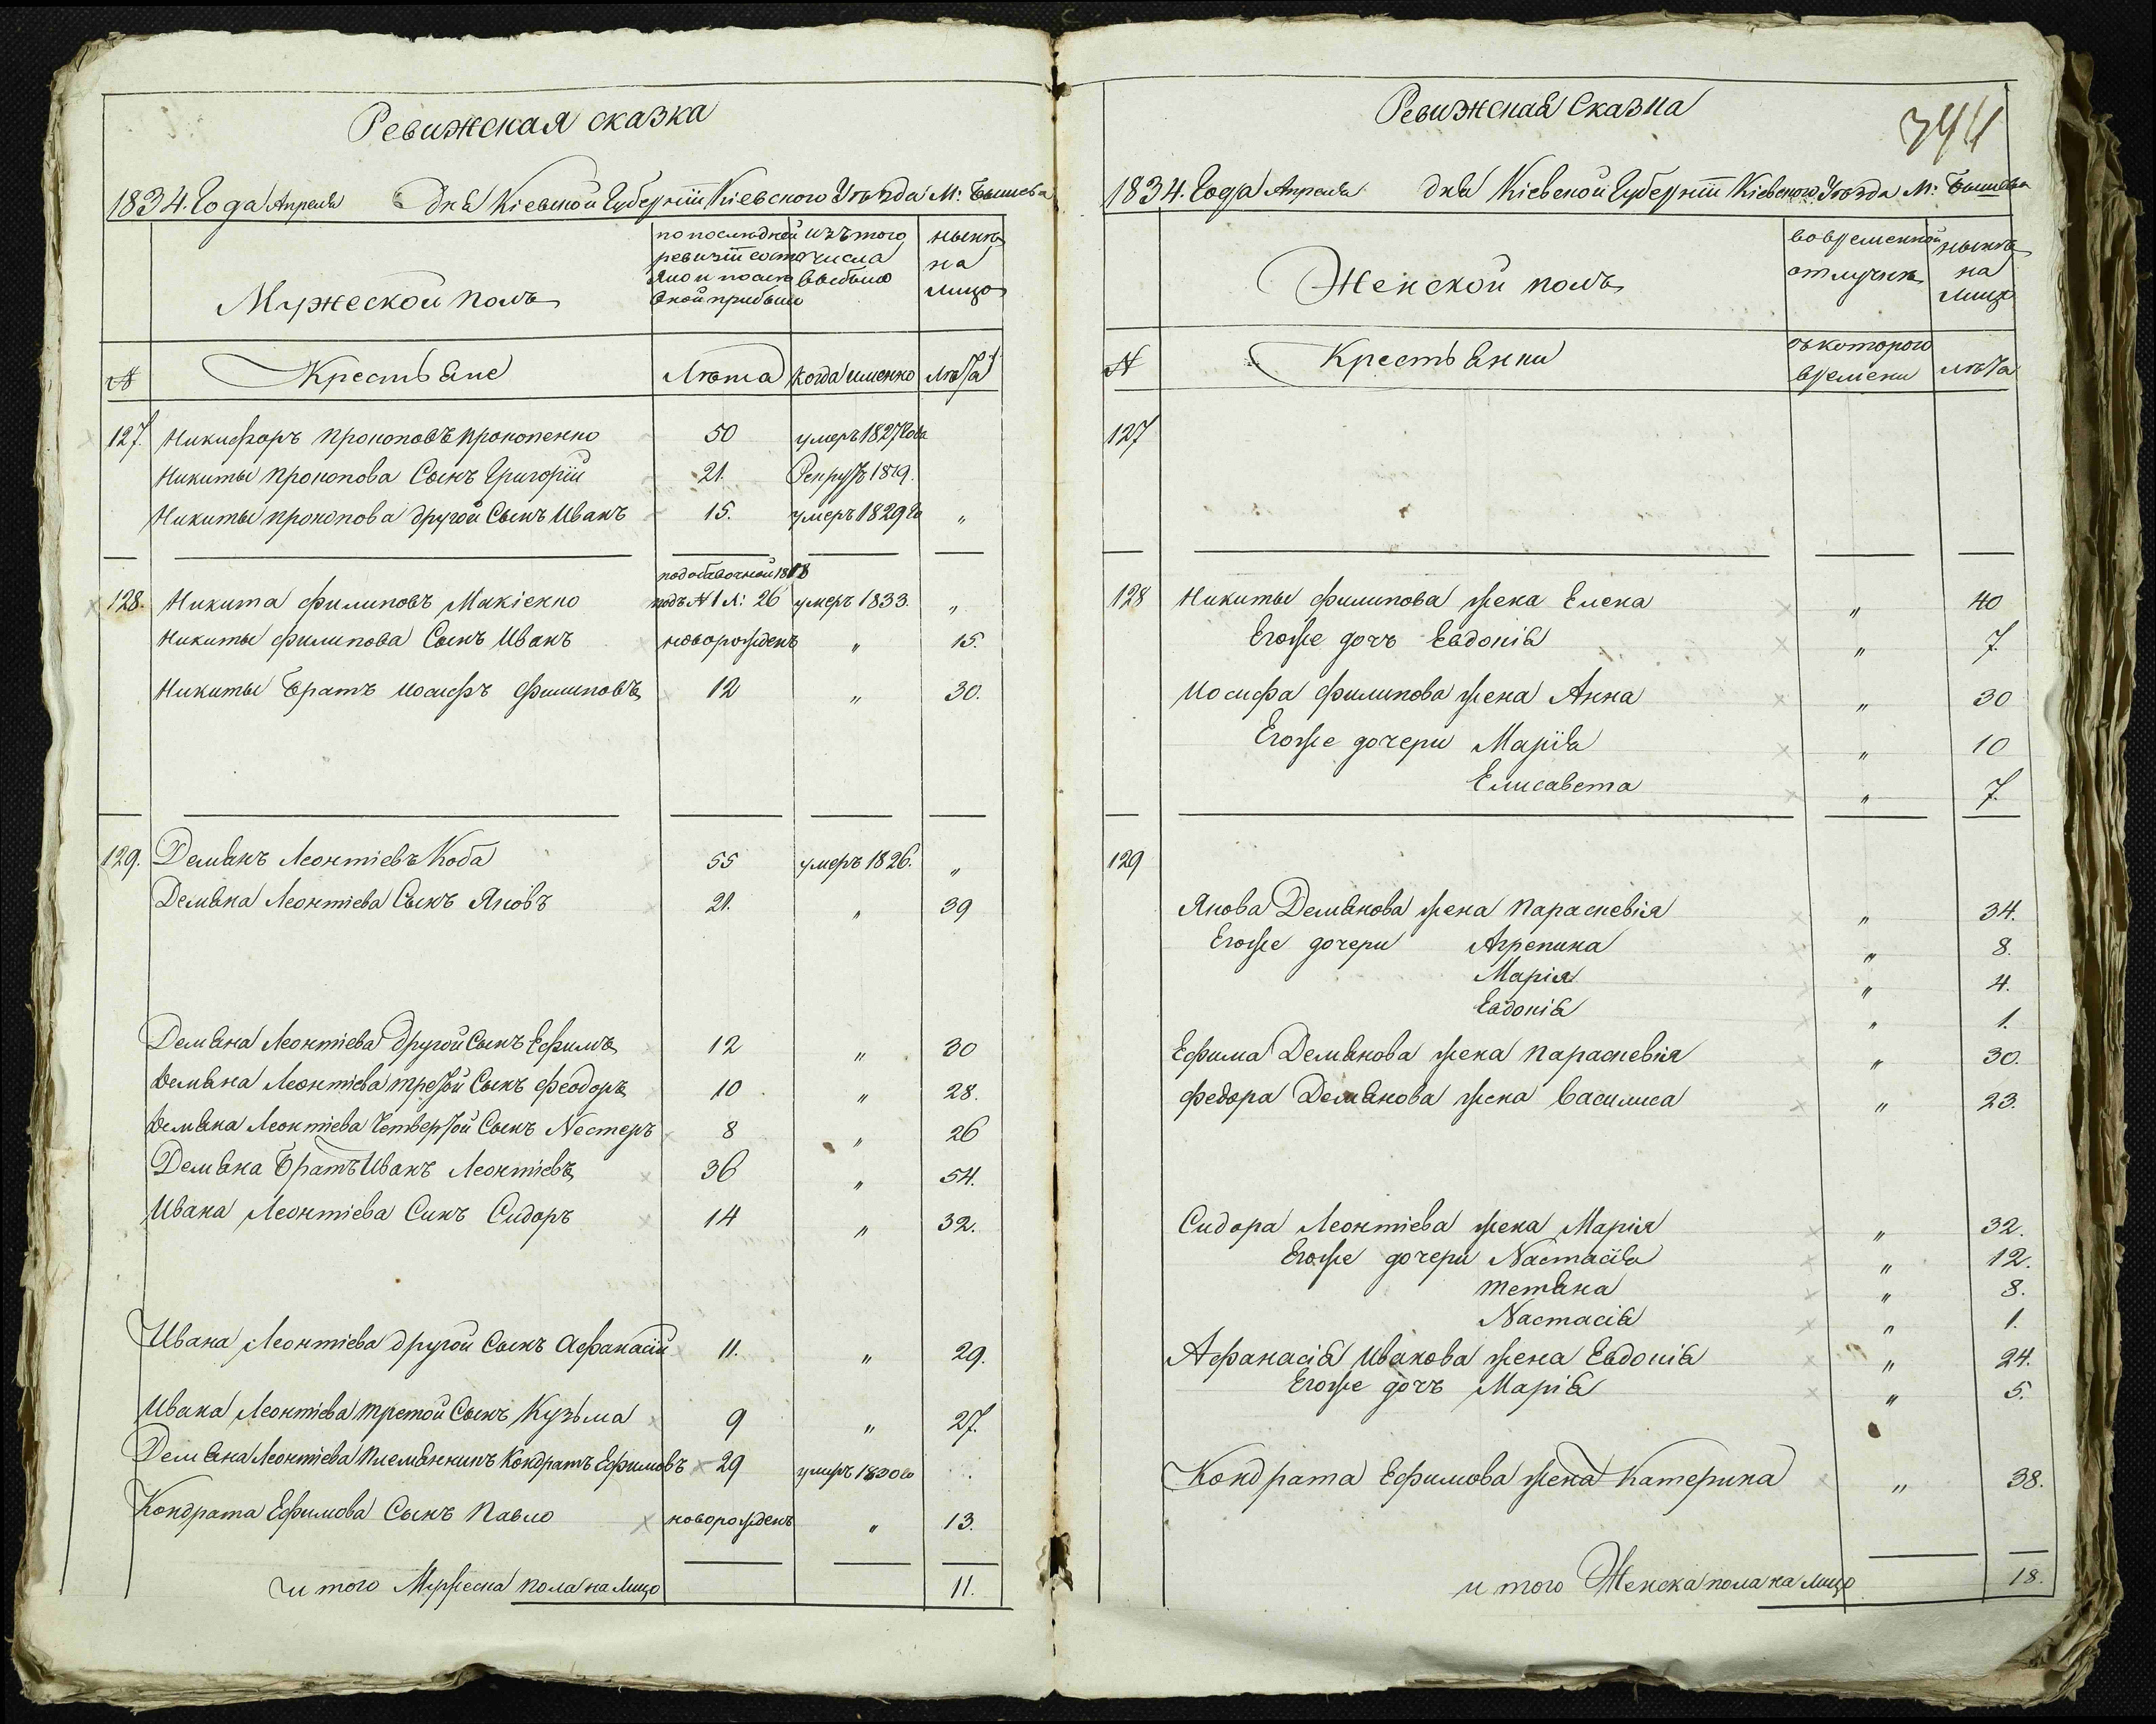 Ревижская сказка
1834. Года Апреля дня Кіевской Губерніи Кіевского Уѣзда М: Бышева
Мужеской полъ
по последней ревизіи состояло и после оной прибыло
изъ того числа выбыло
нынѣ на лицо
№ Крестьяне Лѣта когда именно лѣта
127. Никифоръ прокоповъ прокопенко 50 умеръ 1827 Года
Никиты прокопова Сынъ Григорій 21. Рекрутъ 1819.
Никиты прокопова другой Сынъ Иванъ 15. умеръ 1829 Го „
подобавочной 1818
128. Никита филиповъ Микіенко подъ № 1 л: 26 умеръ 1833. „
Никиты филипова Сынъ Иванъ новорожденъ „ 15.
Никиты Братъ иосифъ филиповъ 12 „ 30.
129. Демянъ Леонтіевъ Коба 55 умеръ 1826. „
Демяна Леонтіева Сынъ Яковъ 21. „ 39
Демяна Леонтіева другой Сынъ Ефимъ 12 „ 30
Демяна Леонтіева третой Сынъ феодоръ 10 „ 28.
Демяна Леонтіева Четвертой Сынъ Нестеръ 8 „ 26
Демяна Братъ Иванъ Леонтіевъ 36 „ 54.
Ивана Леонтіева Синъ Сидоръ 14 „ 32.
Ивана Леонтіева другой Сынъ Афанасій 11. „ 29.
Ивана Леонтіева третой Сынъ Кузьма 9 „ 27.
Демяна Леонтіева Племянникъ Кондратъ Ефимовъ 29 умеръ 1830 го
Кондрата Ефимова Сынъ Павло новорожденъ „ 13.
и того Мужеска пола на лицо 11.
Ревижская Сказка
344
1834. Года Апреля дня Кіевской Губерніи Кіевского Уѣзда М: Бышева
Женской полъ
во временной отлучкѣ
нынѣ на лицо
№ Крестьянки съ которого времени лѣта
127
128 Никиты филипова жена Елена „ 40
Егоже дочъ Евдокія „ 7.
Иосифа филипова жена Анна „ 30
Егоже дочери Марія „ 10
Елисавета „ 7.
129
Якова Демянова жена Параскевія „ 34.
Егоже дочери Агрепина „ 8.
Марія „ 4.
Евдокія „ 1.
Ефима Демянова жена Параскевія „ 30.
федора Демянова жена Василиса „ 23.
Сидора Леонтіева жена Марія „ 32.
Егоже дочери Настасія „ 12.
Тетяна „ 8.
Настасія „ 1.
Афанасія Иванова жена Евдокія „ 24.
Егоже дочъ Марія „ 5.
Кондрата Ефимова жена Катерина „ 38.
и того Женска пола на лицо 18.